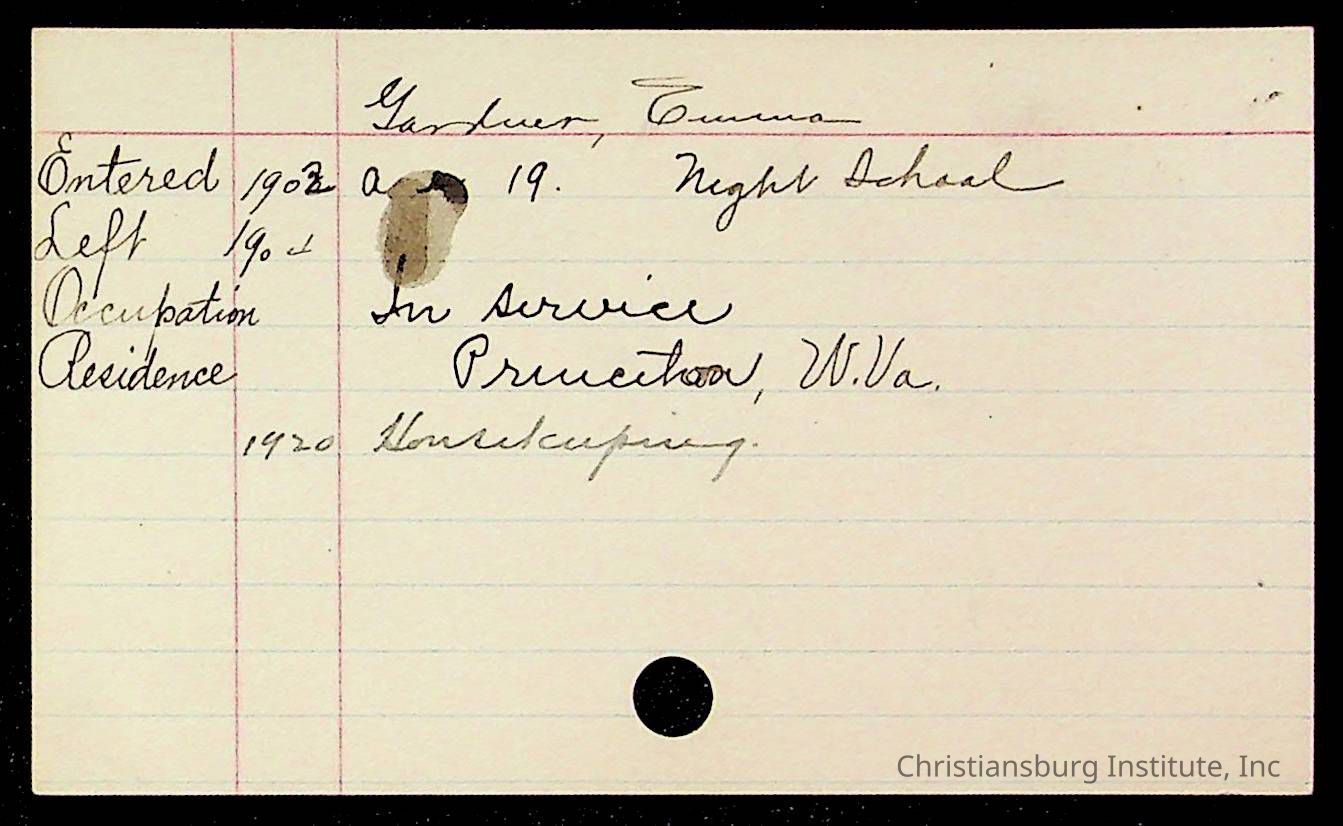 Gardner, Emma
Entered 1902 a 19. Night School
Left 190
Occupation In service
Residence Princeton, W.Va.
1920 Housekeeping.
Christiansburg Institute, Inc